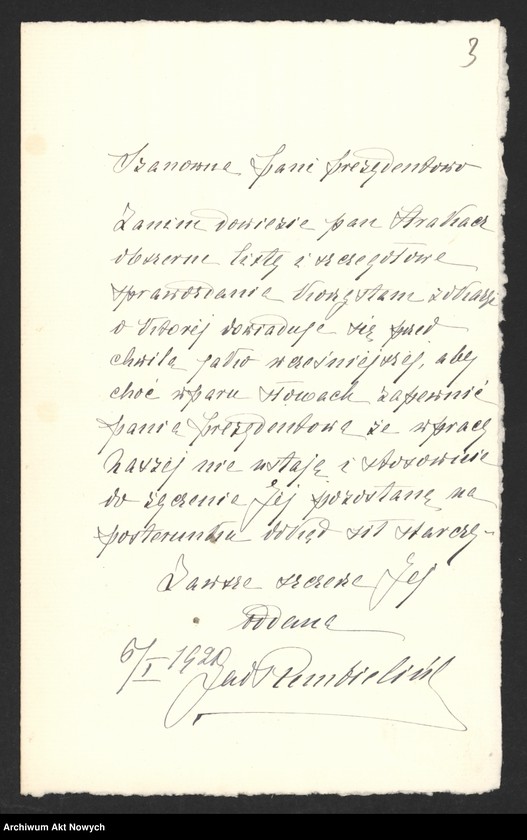 3
Szanowna Pani Prezydentowo
Zanim dowiezie pan Strakacz
obszerne listy i szczegółowe
sprawozdanie korzystam z okazji
o której dowiaduję się przed
chwilą jako wcześniejszej, aby
choć w paru słowach zapewnić
panią Prezydentową że w pracy
naszej nie ustają i stosownie
do życzenia Jej pozostaną na
posterunku dokąd sił starczy.
Zawsze szczerze Jej
oddana
6/I 1920 Jad
Archiwum Akt Nowych